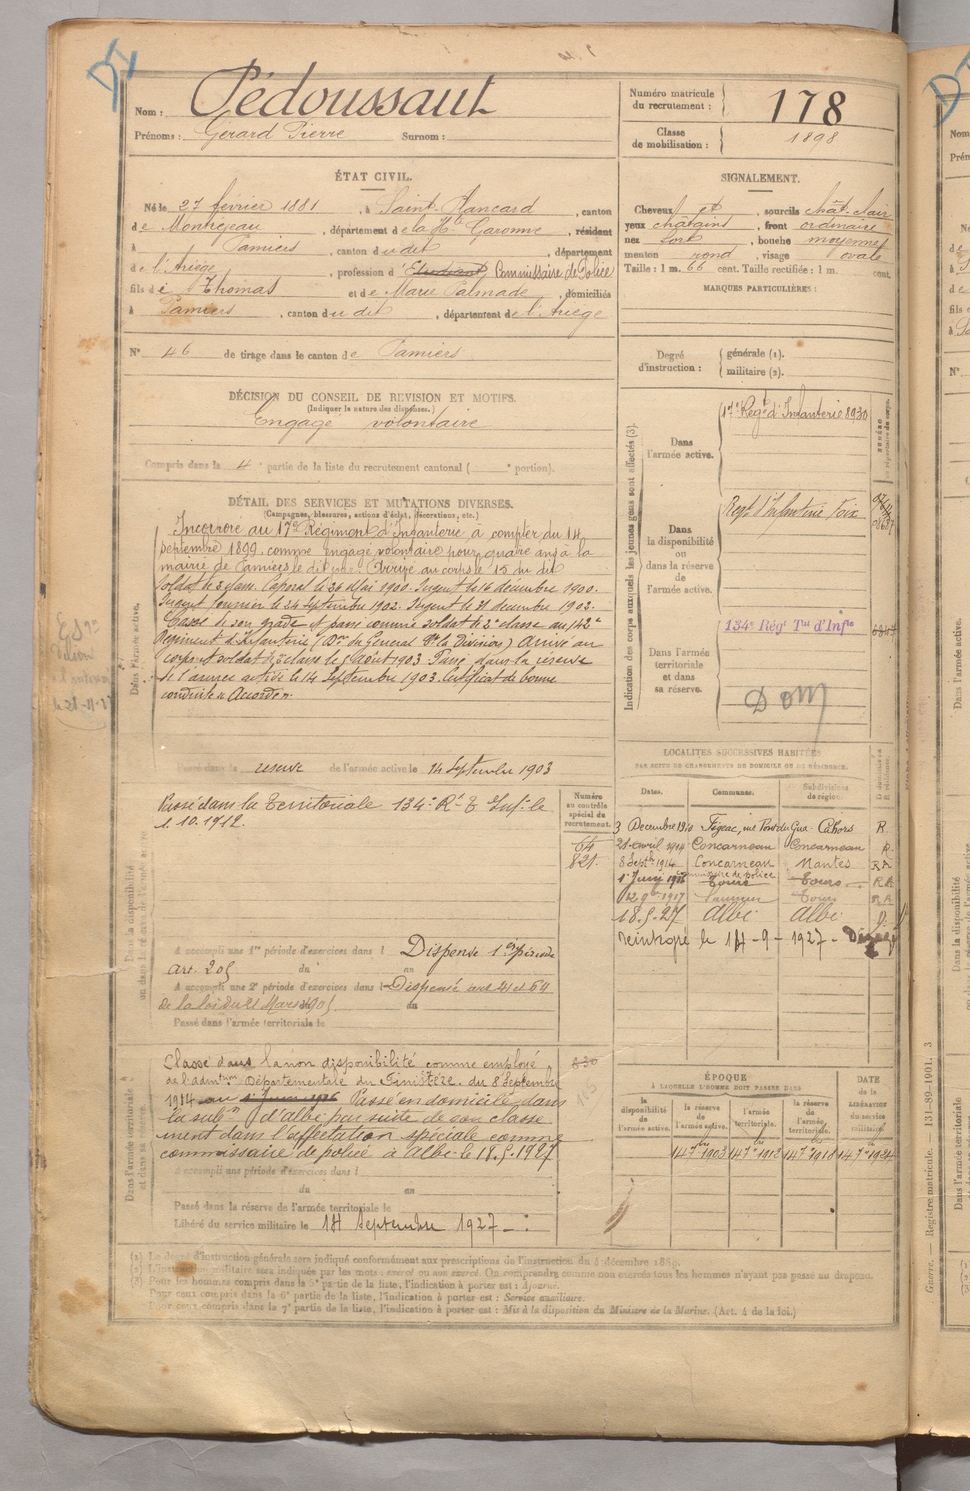 Nom : Pédoussaut
Prénoms : Gérard Pierre Surnom :
Numéro matricule du recrutement : 178
Classe de mobilisation : 1898
ÉTAT CIVIL.
Né le 27 février 1881, à Saint-Plancard, canton
de Montréjeau, département de la Hte Garonne, résident
à Pamiers, canton du dit, département
de l'Ariège, profession d'Etudiant Commissaire de Police
fils de Thomas et de Marie Palmade, domiciliés
à Pamiers, canton du dit, département de l'Ariège
N° 46 de tirage dans le canton de Pamiers
SIGNALEMENT.
Cheveux et, sourcils chât. clair
yeux châtains, front ordinaire
nez fort, bouche moyenne
menton rond, visage ovale
Taille : 1 m. 66 cent. Taille rectifiée : 1 m. cent.
MARQUES PARTICULIÈRES :
Degré d'instruction : générale (1).
militaire (2).
DÉCISION DU CONSEIL DE REVISION ET MOTIFS.
(Indiquer la nature des dispenses.)
Engagé volontaire
Compris dans la 4e partie de la liste du recrutement cantonal ( e portion).
DÉTAIL DES SERVICES ET MUTATIONS DIVERSES.
(Campagnes, blessures, actions d'éclat, décorations, etc.)
Dans l'armée active.
Incorporé au 17e Régiment d'Infanterie à compter du 14
septembre 1899 comme engagé volontaire pour quatre ans à la
mairie de Pamiers le dit jour. Arrivé au corps le 15 du dit
soldat de 2e classe. Caporal le 26 Mai 1900. Sergent le 16 décembre 1900.
Sergent fourrier le 24 Septembre 1902. Sergent le 31 décembre 1902.
Cassé de son grade et passé comme soldat de 2e classe au 142e
Régiment d'Infanterie (Don du Général Ct la Division) Arrivé au
corps et soldat de 2e classe le 5 août 1903 Passé dans la réserve
de l'armée active le 14 Septembre 1903. Certificat de bonne
conduite "Accordé"
Passé dans la réserve de l'armée active le 14 Septembre 1903
Indication des corps auxquels les jeunes gens sont affectés (3).
Dans l'armée active.
17e Regt d'Infanterie 8930
Dans la disponibilité ou dans la réserve de l'armée active.
Regt d'Infanterie Foix
Dans l'armée territoriale et dans sa réserve.
134e Régt Tal d'Infie
DOM
LOCALITÉS SUCCESSIVES HABITÉES
PAR SUITE DE CHANGEMENTS DE DOMICILE OU DE RÉSIDENCE.
Dates. Communes. Subdivisions de région.
3 Decembre 1910 Figeac, rue Pont du Gua Cahors R
21 avril 1914 Concarneau Concarneau R
8 Septbre 1914 Concarneau Nantes RA
1er Juin 1916 commissaire de police Tours Tours RA
12 9bre 1917 Saumur Tours RA
18.5.27 Albi Albi D
reintégré le 14-9-1927-
Numéro au contrôle spécial du recrutement.
64
821
Dans la disponibilité ou dans la réserve de l'armée active.
Passé dans la Territoriale 134e R. T. Inf. le
1. 10. 1912.
A accompli une 1re période d'exercices dans l Dispensé 1ère période
art. 205 du au
A accompli une 2e période d'exercices dans l Dispensé art 41 et 64
de la loi du 21 Mars 1905 du au
Passé dans l'armée territoriale le
Dans l'armée territoriale et dans sa réserve.
Classé dans la non disponibilité comme employé
de l'admtion Départementale du Finistère. du 8 Septembre
1914 au 1er Juin 1916 Passé en domicile dans
la subon d'Albi par suite de son classe
ment dans l'affectation spéciale comme
commissaire de police à Albi le 18.5.1927
A accompli une période d'exercices dans l
du au
Passé dans la réserve de l'armée territoriale le
Libéré du service militaire le 14 Septembre 1927
ÉPOQUE
À LAQUELLE L'HOMME DOIT PASSER DANS
la disponibilité de l'armée active.
la réserve de l'armée active.
l'armée territoriale.
la réserve de l'armée territoriale.
DATE de la LIBÉRATION du service militaire.
14 7bre 1903 14 7bre 1912 14 7bre 1918 14 7bre 1924
(1) Le degré d'instruction générale sera indiqué conformément aux prescriptions de l'instruction du 4 décembre 1889.
(2) L'instruction militaire sera indiquée par les mots : exercé ou non exercé. On comprendra comme non exercés tous les hommes n'ayant pas passé au drapeau.
(3) Pour les hommes compris dans la 5e partie de la liste, l'indication à porter est : Ajourné.
Pour ceux compris dans la 6e partie de la liste, l'indication à porter est : Service auxiliaire.
Pour ceux compris dans la 7e partie de la liste, l'indication à porter est : Mis à la disposition du Ministre de la Marine. (Art. 4 de la loi.)
Guerre. — Registre matricule. — 131-89-1901. 3